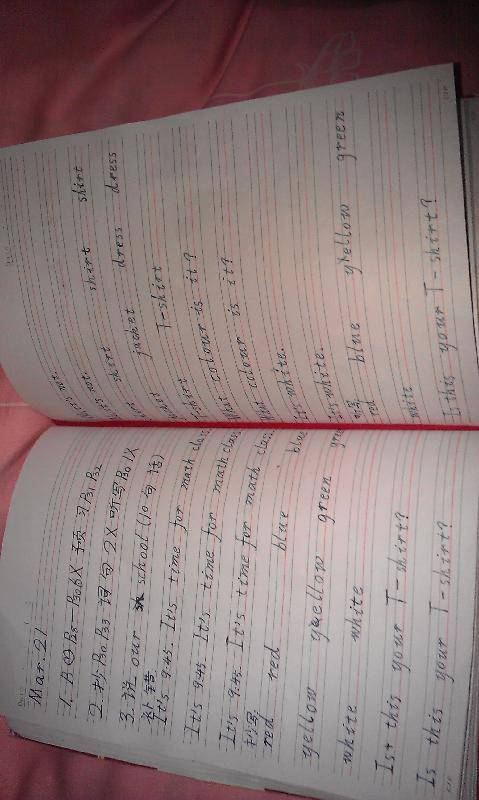 Mar. 21
1. B P28 P30 6X 预习 P31 P32
2. 抄 P30 P33 词句 2X 听写 P30 1X
3. 说 our school (10句话)
补错
It's 9:45. It's time for math class.
It's 9:45. It's time for math class.
It's 9:45. It's time for math class.
抄写
red red blue blue
yellow yaellow green gree
white white
Ist this your T-shirt?
Is this your T-shirt?
not.
not.
shirt shirt shirt
jacket dress dress
T-shirt
shirt
What colour is it?
What colour is it?
It's white.
It's white.
听写
red blue yrellow green
white
Is this your T-shirt?